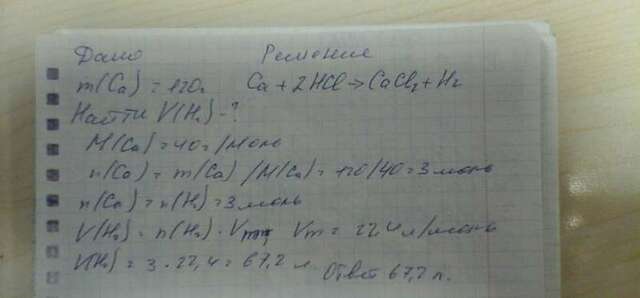 Дано Решение
m(Ca) = 120г Ca + 2HCl → CaCl₂ + H₂
Найти V(H₂) - ?
M(Ca) = 40 г/моль
n(Ca) = m(Ca) / M(Ca) = 120/40 = 3 моль
n(Ca) = n(H₂) = 3 моль
V(H₂) = n(H₂) · Vm, Vm = 22,4 л/моль
V(H₂) = 3 · 22,4 = 67,2 л. Ответ 67,2 л.